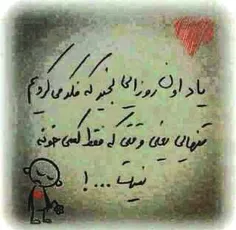 یاد اون روزایی بخیر که فکر می کردیم
تنهایی یعنی وقتی که فقط کسی خونه
نیست ...!